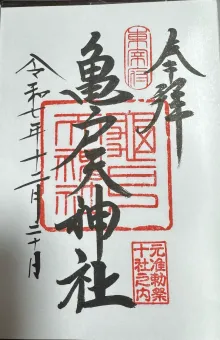 奉拝
亀戸天神社
令和七年十二月二十日
東宰府
元准勅祭
十社之内